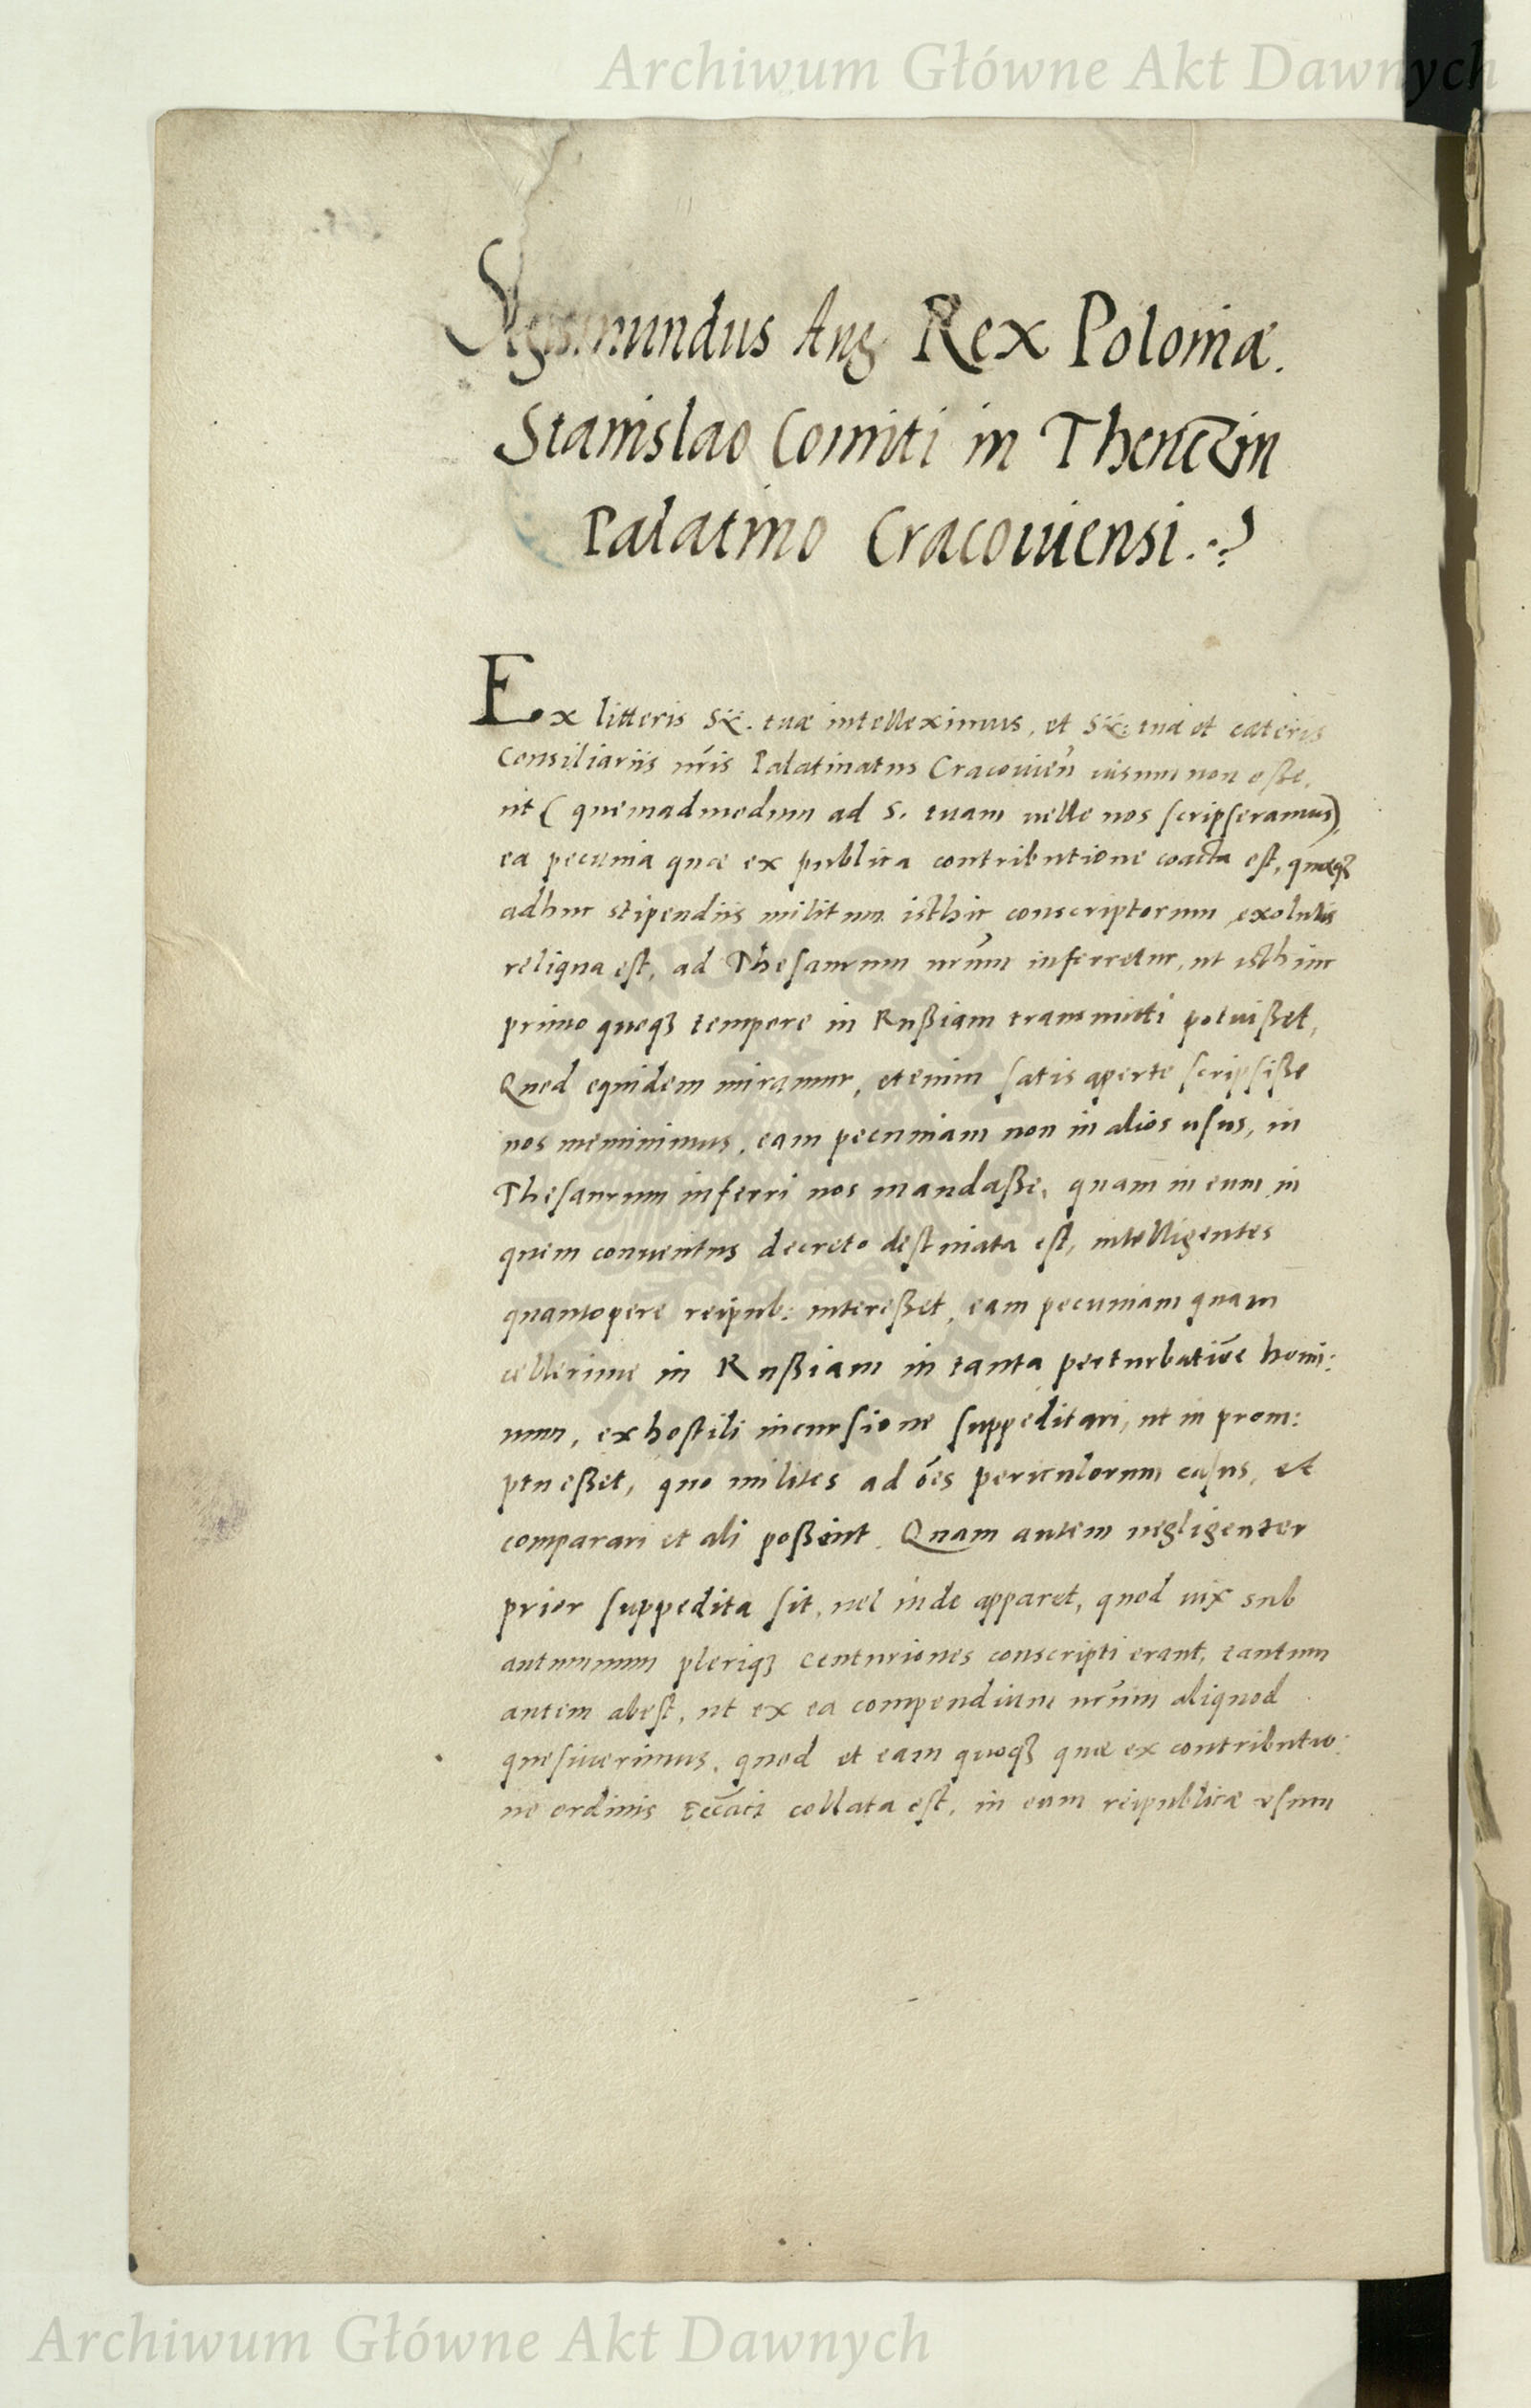 Archiwum Główne Akt Dawnych
Sigismundus Aug Rex Poloniæ.
Stanislao Comiti in Thenczin
Palatino Cracouiensi.
Ex litteris tuæ intelleximus, et tuæ et cæteris
Consiliariis nr̃is Palatinatus Cracouieñ uisum non esse,
ut ( quemadmodum ad S. tuam uelle nos scripseramus),
ea pecunia quæ ex publica contributione coacta est, quæqꝫ
adhuc stipendiis militum isthic conscriptorum exolutis
reliqua est, ad Thesaurum nr̃um inferretur, ut isthinc
primo quoqꝫ tempore in Rußiam transmitti potuißet,
Quod equidem miramur, etenim satis aperte scripsiße
nos meminimus, eam pecuniam non in alios usus, in
Thesaurum inferri nos mandaße, quam in eum in
quem conuentus decreto destinata est, intelligentes
quantopere reipub: intereßet, eam pecuniam quam
cellerime in Rußiam in tanta perturbatiõe homi:
num, ex hostili incursione suppeditari, ut in prom:
ptu eßet, quo milites ad ões periculorum casus, et
comparari et ali poßint. Quam autem negligenter
prior suppedita sit, uel inde apparet, quod uix sub
autumnum pleriqꝫ centuriones conscripti erant, tantum
autem abest, ut ex ea compendium nr̃um aliquod
quesiuerimus, quod et eam quoqꝫ quæ ex contributio:
ne ordinis collata est, in eum reipublicæ usum
Archiwum Główne Akt Dawnych